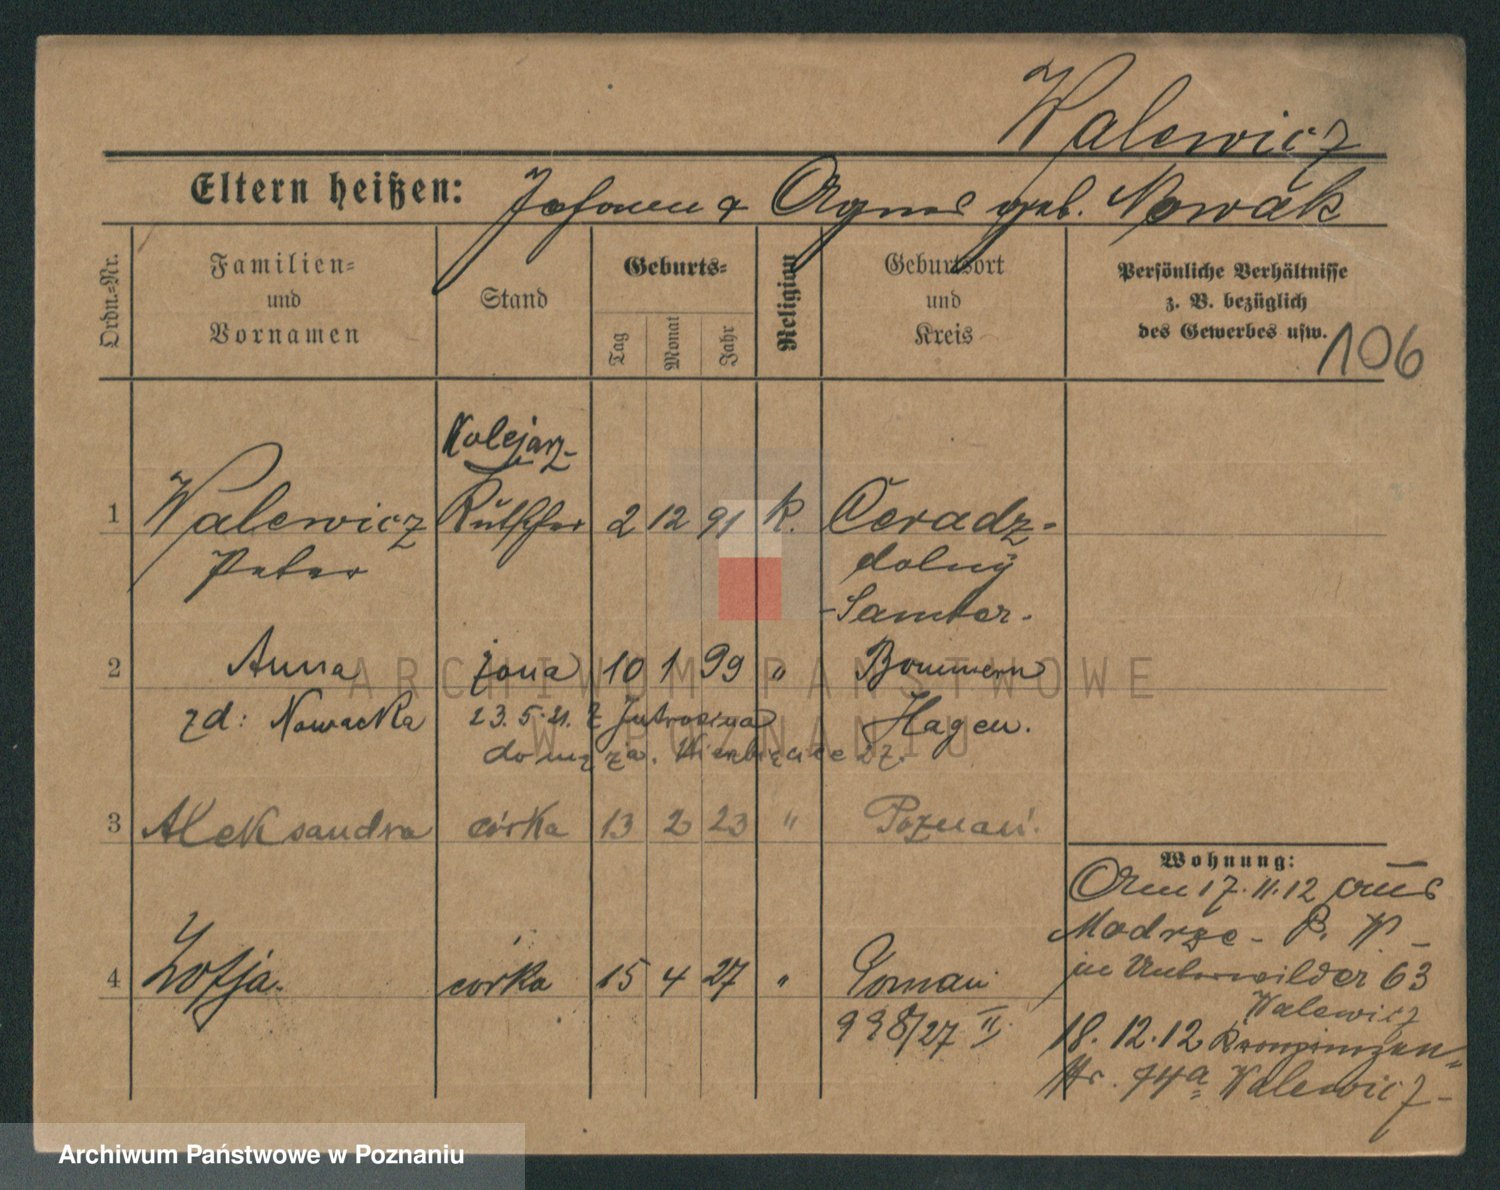 Walewicz
Eltern heißen: Johann & Agnes geb. Nowak
Ordn.-Nr.
Familien-
und
Vornamen
Stand
Geburts-
Tag
Monat
Jahr
Religian
Geburtsort
und
Kreis
Persönliche Verhältnisse
z. B. bezüglich
des Gewerbes usw.
106
Kolejarz
1 Walewicz Kutscher 2 12 91 k. Ceradz-
Peter dolny
Samter.
2 Anna żona 10 1 99 " Bommern
zd: Nowacka 23.5.21. z Jutrosina Hagen.
do męża. Wierzbięcice
3 Aleksandra córka 13 2 23 " Poznań.
Wohnung:
Am 17.11.12 aus
Modrze - P. W. -
in Unterwilda 63
Walewicz
4 Zofja. corka 15 4 27 " Poznań
998/27 II
18.12.12 Kronprinzen-
str. 74a Walewicz-
ARCHIWUM PAŃSTWOWE
W POZNANIU
Archiwum Państwowe w Poznaniu